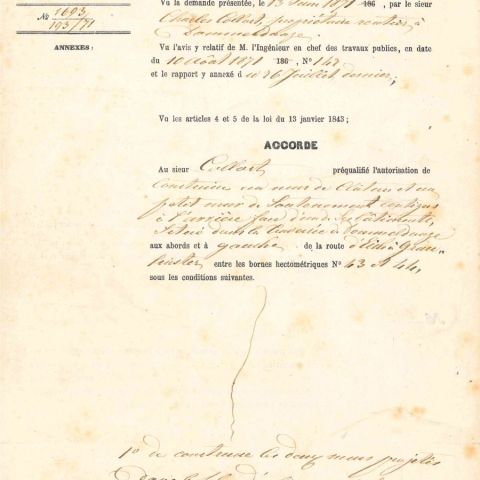 Vu la demande présentée, le 13 Juin 1871 186 , par le sieur
Charles Collart, propriétaire rentier à
Dommeldange
Nº 1693
193/71
ANNEXES :
Vu l'avis y relatif de M. l'Ingénieur en chef des travaux publics, en date
du 10 Août 1871 186 , Nº 142
et le rapport y annexé du 26 Juillet dernier;
Vu les articles 4 et 5 de la loi du 13 janvier 1843;
ACCORDE
Au sieur Collart préqualifié l'autorisation de
Construire un mur de Clôture et un
petit mur de Soutenement contigus
à l'arrière face d'un de ses bâtiments,
situé dans la traversée de Dommeldange
aux abords et à gauche de la route d'Eich à Greven-
entre les bornes hectométriques Nº 43 et 44,
sous les conditions suivantes.
1º de construire les deux murs projetés